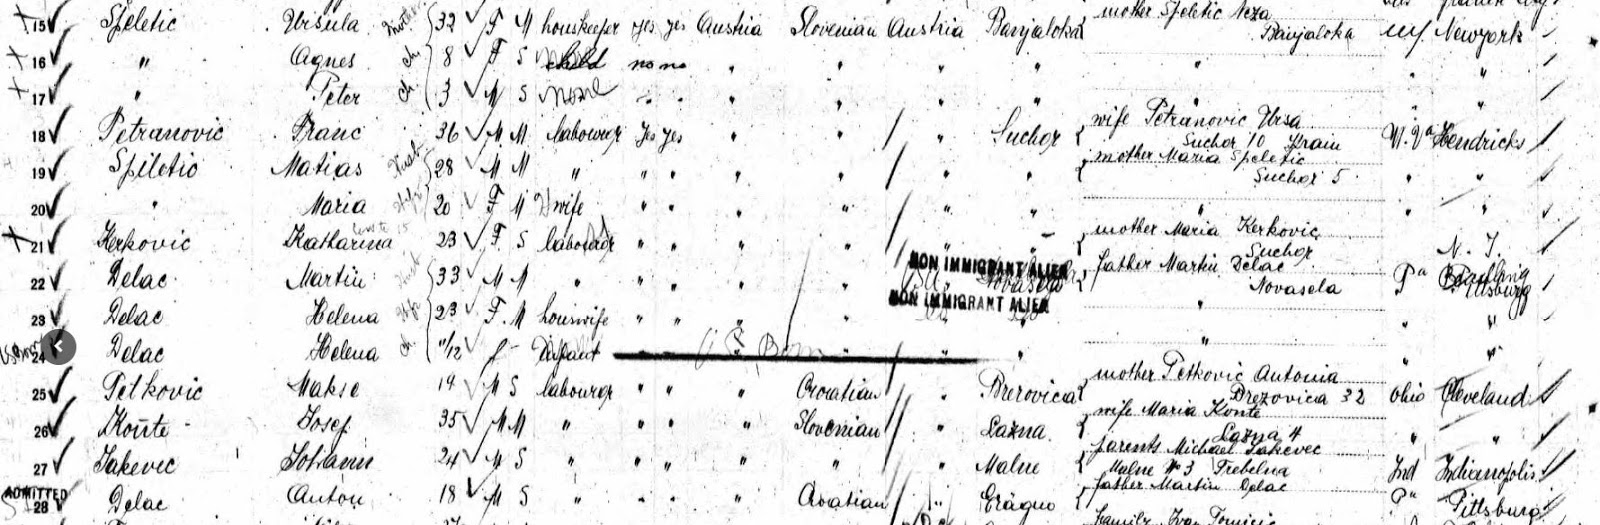 mother Speletic Neza
15 Speletic Uršula mother 32 F M housekeeper yes yes Austria Slovenian Austria Banjaloka Banjaloka NY Newyork
16 " Agnes ch. 8 F S child no no " " " " " " "
17 " Peter ch 3 M S none " " " " " " " "
wife Petranovic Ursa
18 Petranovic Franc 36 M M labourer yes yes " " " Suchor Suchor 10 Krain W. Va Hendricks
mother Maria Speletic
19 Spiletic Matias 28 M M " " " " " " " Suchor 5 " "
20 " Maria 20 F M wife " " " " " " " " "
mother Maria Kerkovic
21 Kerkovic Katharina 23 F S labourer " " " " " Suchor N. J.
NON IMMIGRANT ALIEN
father Martin Delac
22 Delac Martin 33 M M " " " " " Novasela Novasela Pa Pittsburg
NON IMMIGRANT ALIEN
23 Delac Helena 23 F. M houswife " " " " " " "
24 Delac Helena ch 11/12 f Infant U.S. Born " " " "
mother Petkovic Antonia
25 Petkovic Makse 19 M S labourer " " " Croatian " Brezovica Brezovica 32 Ohio Cleveland
wife Maria Konte
26 Konte Josef 35 M M " " " " Slovenian " Lazna Lazna 4 " "
parents Michael Jakevec
27 Jakevic Johann 24 M S " " " " " " Malne Malne No 3 Trebelna Ind Indianopolis
father Martin Delac
ADMITTED
28 Delac Anton 18 M S " " " " Croatian " Pa Pittsburg
Family Ivan